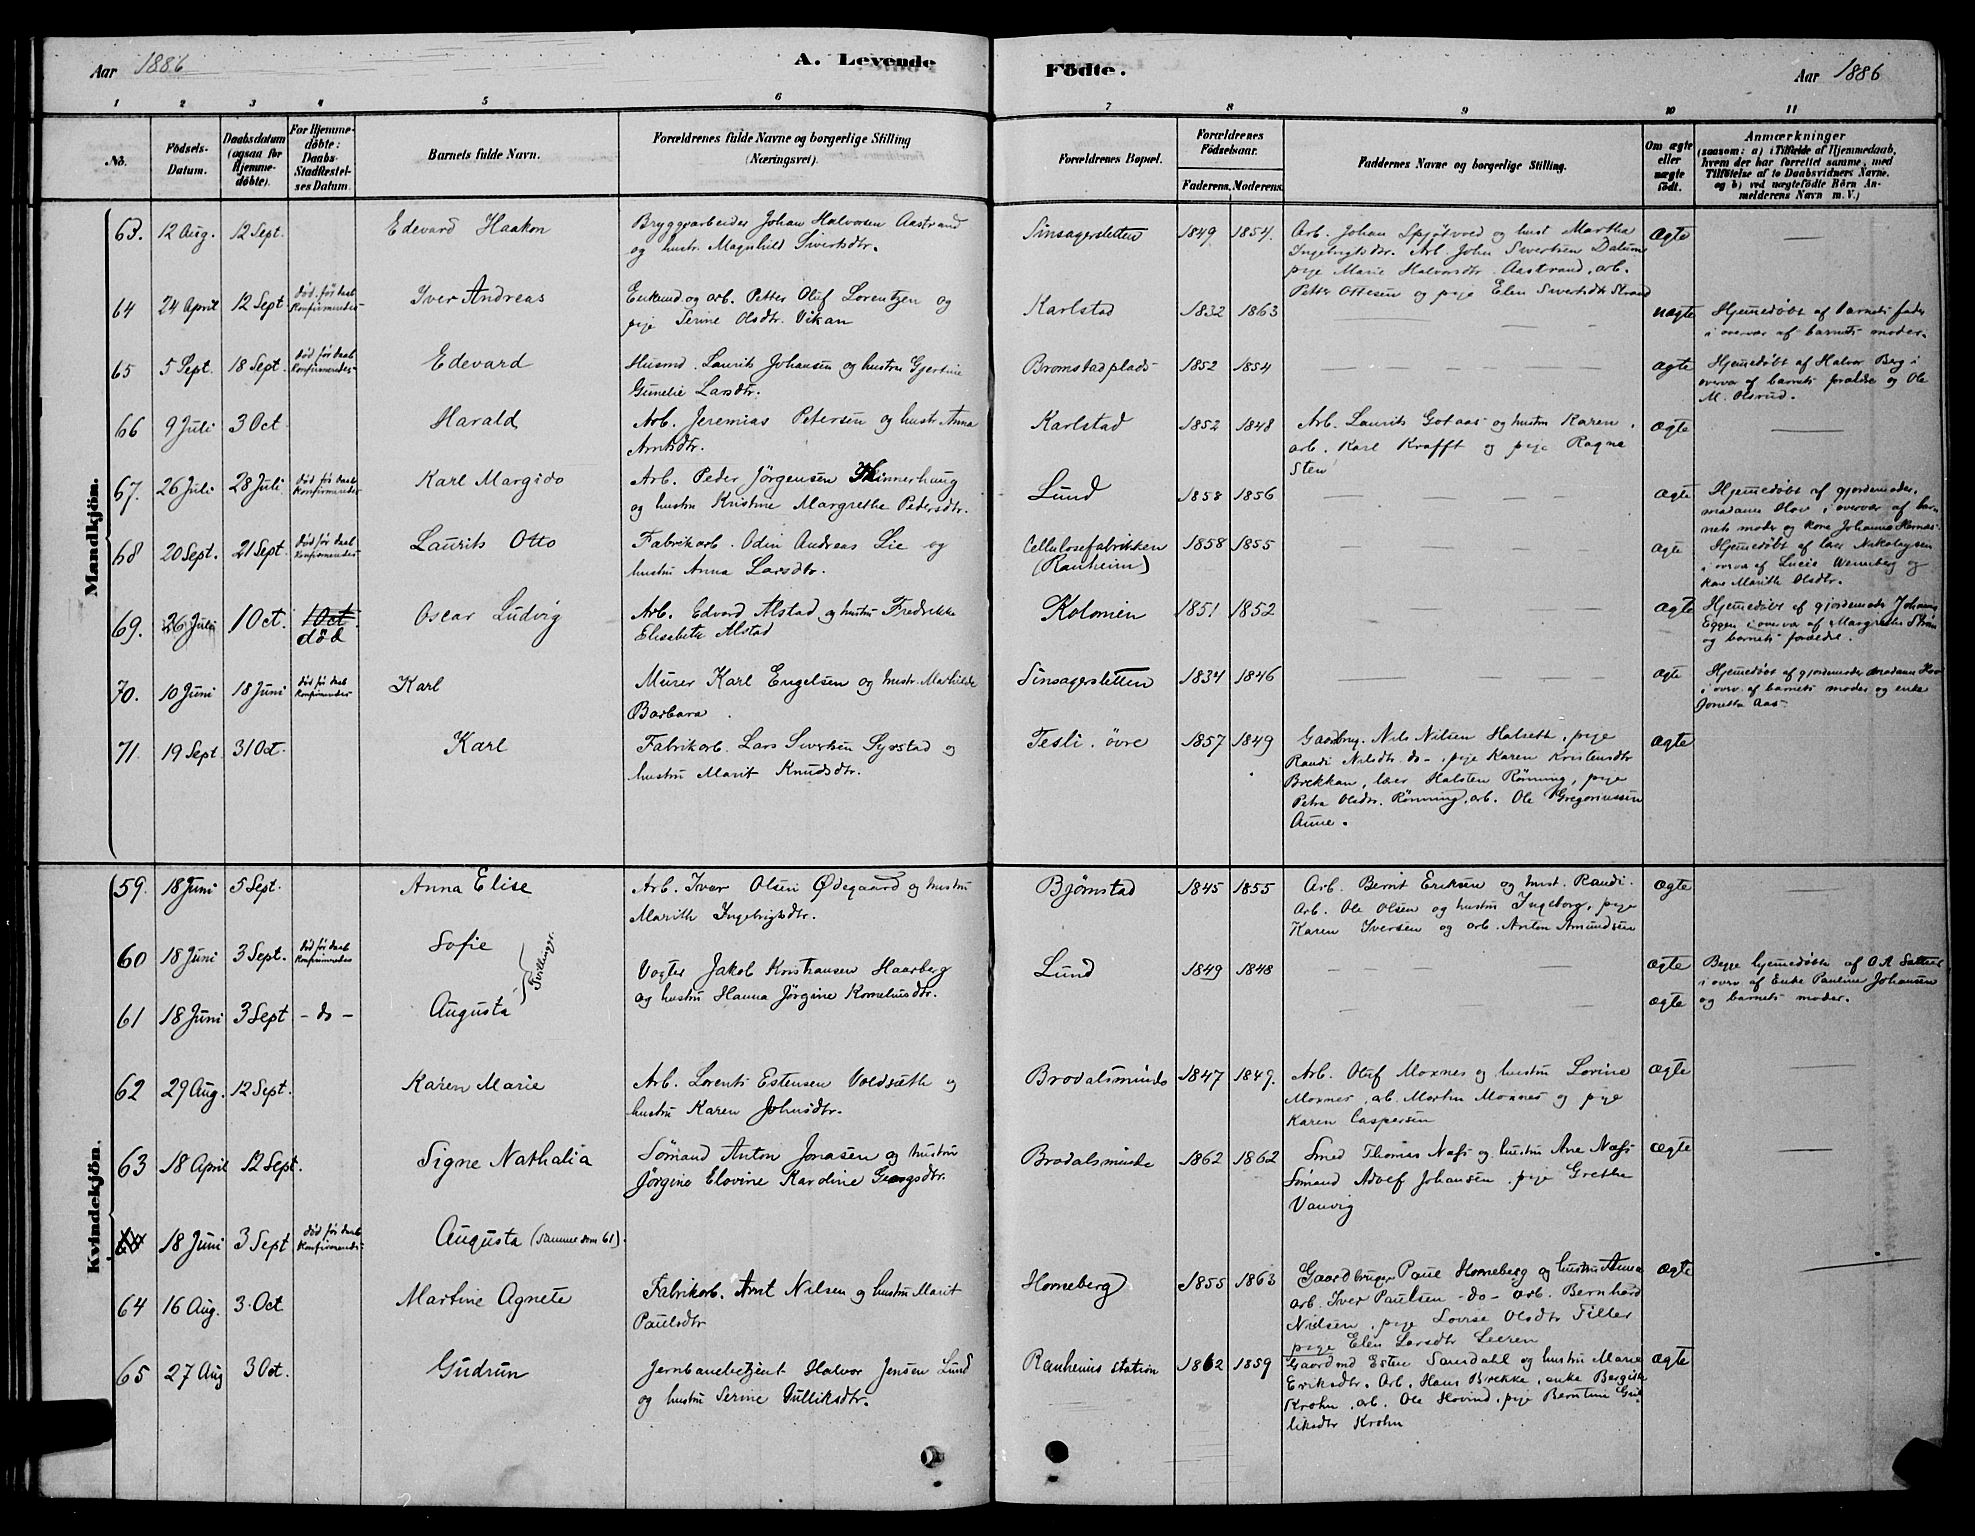 Aar 1886
A. Levende Födte.
Aar 1886
1 2 3 4 5 6 7 8 9 10 11
No.
Födsels-
Datum.
Daabsdatum
(ogsaa for
Hjemme-
döbte).
For Hjemme-
döbte:
Daabs-
Stadfæstel-
ses Datum.
Barnets fulde Navn.
Forældrenes fulde Navne og borgerlige Stilling
(Næringsvei).
Forældrenes Bopæl.
Forældrenes
Födselsaar.
Faderens. Moderens.
Faddernes Navne og borgerlige Stilling.
Om ægte
eller
uægte
födt.
Anmærkninger
(saasom: a) i Tilfælde af Hjemmedaab,
hvem der har forrettet samme, med
Tilföielse af to Daabsvidners Navne,
og b) ved uægtefödte Börn An-
melderens Navn m. V.)
Mandkjön.
63. 12 Aug. 12 Sept. Edevard Haakon
Bryggearbeider Johan Halvorsen Aastrand
og hustr. Magnhild Sivertsdtr.
Sinsagersletten 1849 1854.
Arb. Johan Spjørvod og hust Martha
Ingebrigtsdtr. Arb. John Sivertsen Dalum
pige Marie Halvorsdtr. Aastrand, arb.
Petter Ottesen og pige Elen Sivertsdtr Strand
ægte —
64 24 April 12 Sept død før daab Konfirmeredes Iver Andreas
Enkemd. og arb. Petter Oluf Lorentzen og
pige Serine Olsdtr. Vikan
Karlstad 1832 1863 — — — uægte
Hjemedøbt af barnets fader
i overvær af barnets moder.
65 5 Sept. 18 Sept. død før daab Konfirmeredes Edevard
Husmd. Laurits Johansen og hustru Gjertine
Gunelie Larsdtr.
Bromstadplads 1852 1854 — — — ægte
Hjemedøbt af Halvor Berg i
overvær af barnets forældre og Ole
M. Olsrud.
66 9 Juli 3 Oct Harald
Arb. Jeremias Petersen og hustr. Anna
Arntsdtr.
Karlstad 1852 1848
Arb. Laurits Gotaas og hustru Karen,
arb. Karl Krafft og pige Ragna
Sten
ægte —
67. 26 Juli 28 Juli død før daab Konfirmeredes Karl Margido
Arb. Peder Jörgensen Skinnerhaug
og hustru Kristine Margrethe Pedersdtr.
Lund 1858 1856 — — — ægte
Hjemedøbt af gjordemoder,
madame Hov i overvær af bar
nets moder og kone Johanna Hernæs.
68 20 Sept. 21 Sept. død før daab Konfirmeredes Laurits Otto
Fabrikarb. Odin Andreas Lie og
hustru Anna Larsdtr.
Cellulosefabrikken
(Ranheim)
1858 1855 — — — ægte
Hjemedøbt af lær. Nikolaysen
i overvær af Lucie Wennberg og
kone Marith Olsdtr.
69. 26 Juli 1 Oct. 1 Oct.
død
Oscar Ludvig
Arb. Edvard Alstad og hustru Fredrikke
Elisabeth Alstad
Kolonien 1851 1852 — — — ægte
Hjemedøbt af gjordemoder Johanna
Eggen i overvær af Margrethe Strøm
og barnets forældre.
70. 10 Juni 18 Juni død før daab Konfirmeredes Karl
Murer Karl Engelsen og hustr. Mathilde
Barbara.
Sinsagersletten 1834 1846 — — — ægte
Hjemedøbt af gjordemoder madame Hov
i overv. af barnets moder og enke
Jonetta Aas.
71. 19 Sept 31 Oct. Karl
Fabrikarb. Lars Sivertsen Syrstad og
hustru Marit Knudsdtr.
Tesli. øvre 1857 1849
Gaardbrug. Nils Nilsen Halseth, pige
Randi Nilsdtr. do-, pige Karen Kristensdtr
Brekkan, lærer Halsten Rönning, pige
Petra Olsdtr. Rönning, arb. Ole Gregoriussen
Aune.
ægte
Kvindekjön.
59. 18 Juni 5 Sept. Anna Elise
Arb. Iver Olsen Ødegaard og hustru
Marith Ingebrigtsdtr.
Bjørnstad 1845 1855
Arb. Bernt Eriksen og hust. Randi.
Arb. Ole Olsen og hustru Ingeborg, pige
Karen Iversen og arb. Anton Amundsen
ægte —
60 18 Juni 3 Sept. død før daab Konfirmeredes Sofie
Tvillinger.
Vogter Jakob Kristiansen Haarberg
og hustru Hanna Jörgine Korneliusdtr.
Lund 1849 1848 — — — ægte
Begge hjemedøbte af O. A.
i overv af Enke Pauline Johansen
og barnets moder.
61 18 Juni 3 Sept - do - Augusta — — — ægte
62 29 Aug. 12 Sept. Karen Marie
Arb. Lorents Estensen Voldsæth og
hustru Karen Johnsdtr.
Brodalsminde 1847 1849.
Arb. Oluf Moxnes og hustru Lovine
Moxnes, arb. Martin Moxnes og pige
Karen Caspersen
ægte —
63 18 April 12 Sept. Signe Nathalia
Sømand Anton Jonasen og hustru
Jörgine Elovine Kardine Georgsdtr.
Brodalsminde 1862 1862
Smed Thomas Næss og hustru Ane Næss
Sömand Adolf Johansen, pige Grethe
Vanvig
ægte —
64 18 Juni 3 Sept død før daab Konfirmeredes Augusta (samme som 61).
64 16 Aug. 3. Oct Martine Agnete
Fabrikarb. Arnt Nilsen og hustru Marit
Paulsdtr
Horneberg 1855 1863
Gaardbruger Paul Horneberg og hustru Anna
arb. Iver Paulsen - do - arb. Bernhard
Nielsen, pige Lovise Olsdtr Tiller
pige Elen Larsdtr Leeren
ægte —
65 27 Aug 3 Oct. Gudrun
Jernbanebetjent Halvor Jensen Lund
og hustru Serine Gulliksdtr.
Ranheims station 1862 1859
Gaardmd Esten Sandahl og hustru Marie
Eriksdtr. Arb. Hans Brekke, enke Bergitte
Krohn, arb. Ole Hovind, pige Berntine Gul
liksdtr Krohn
ægte